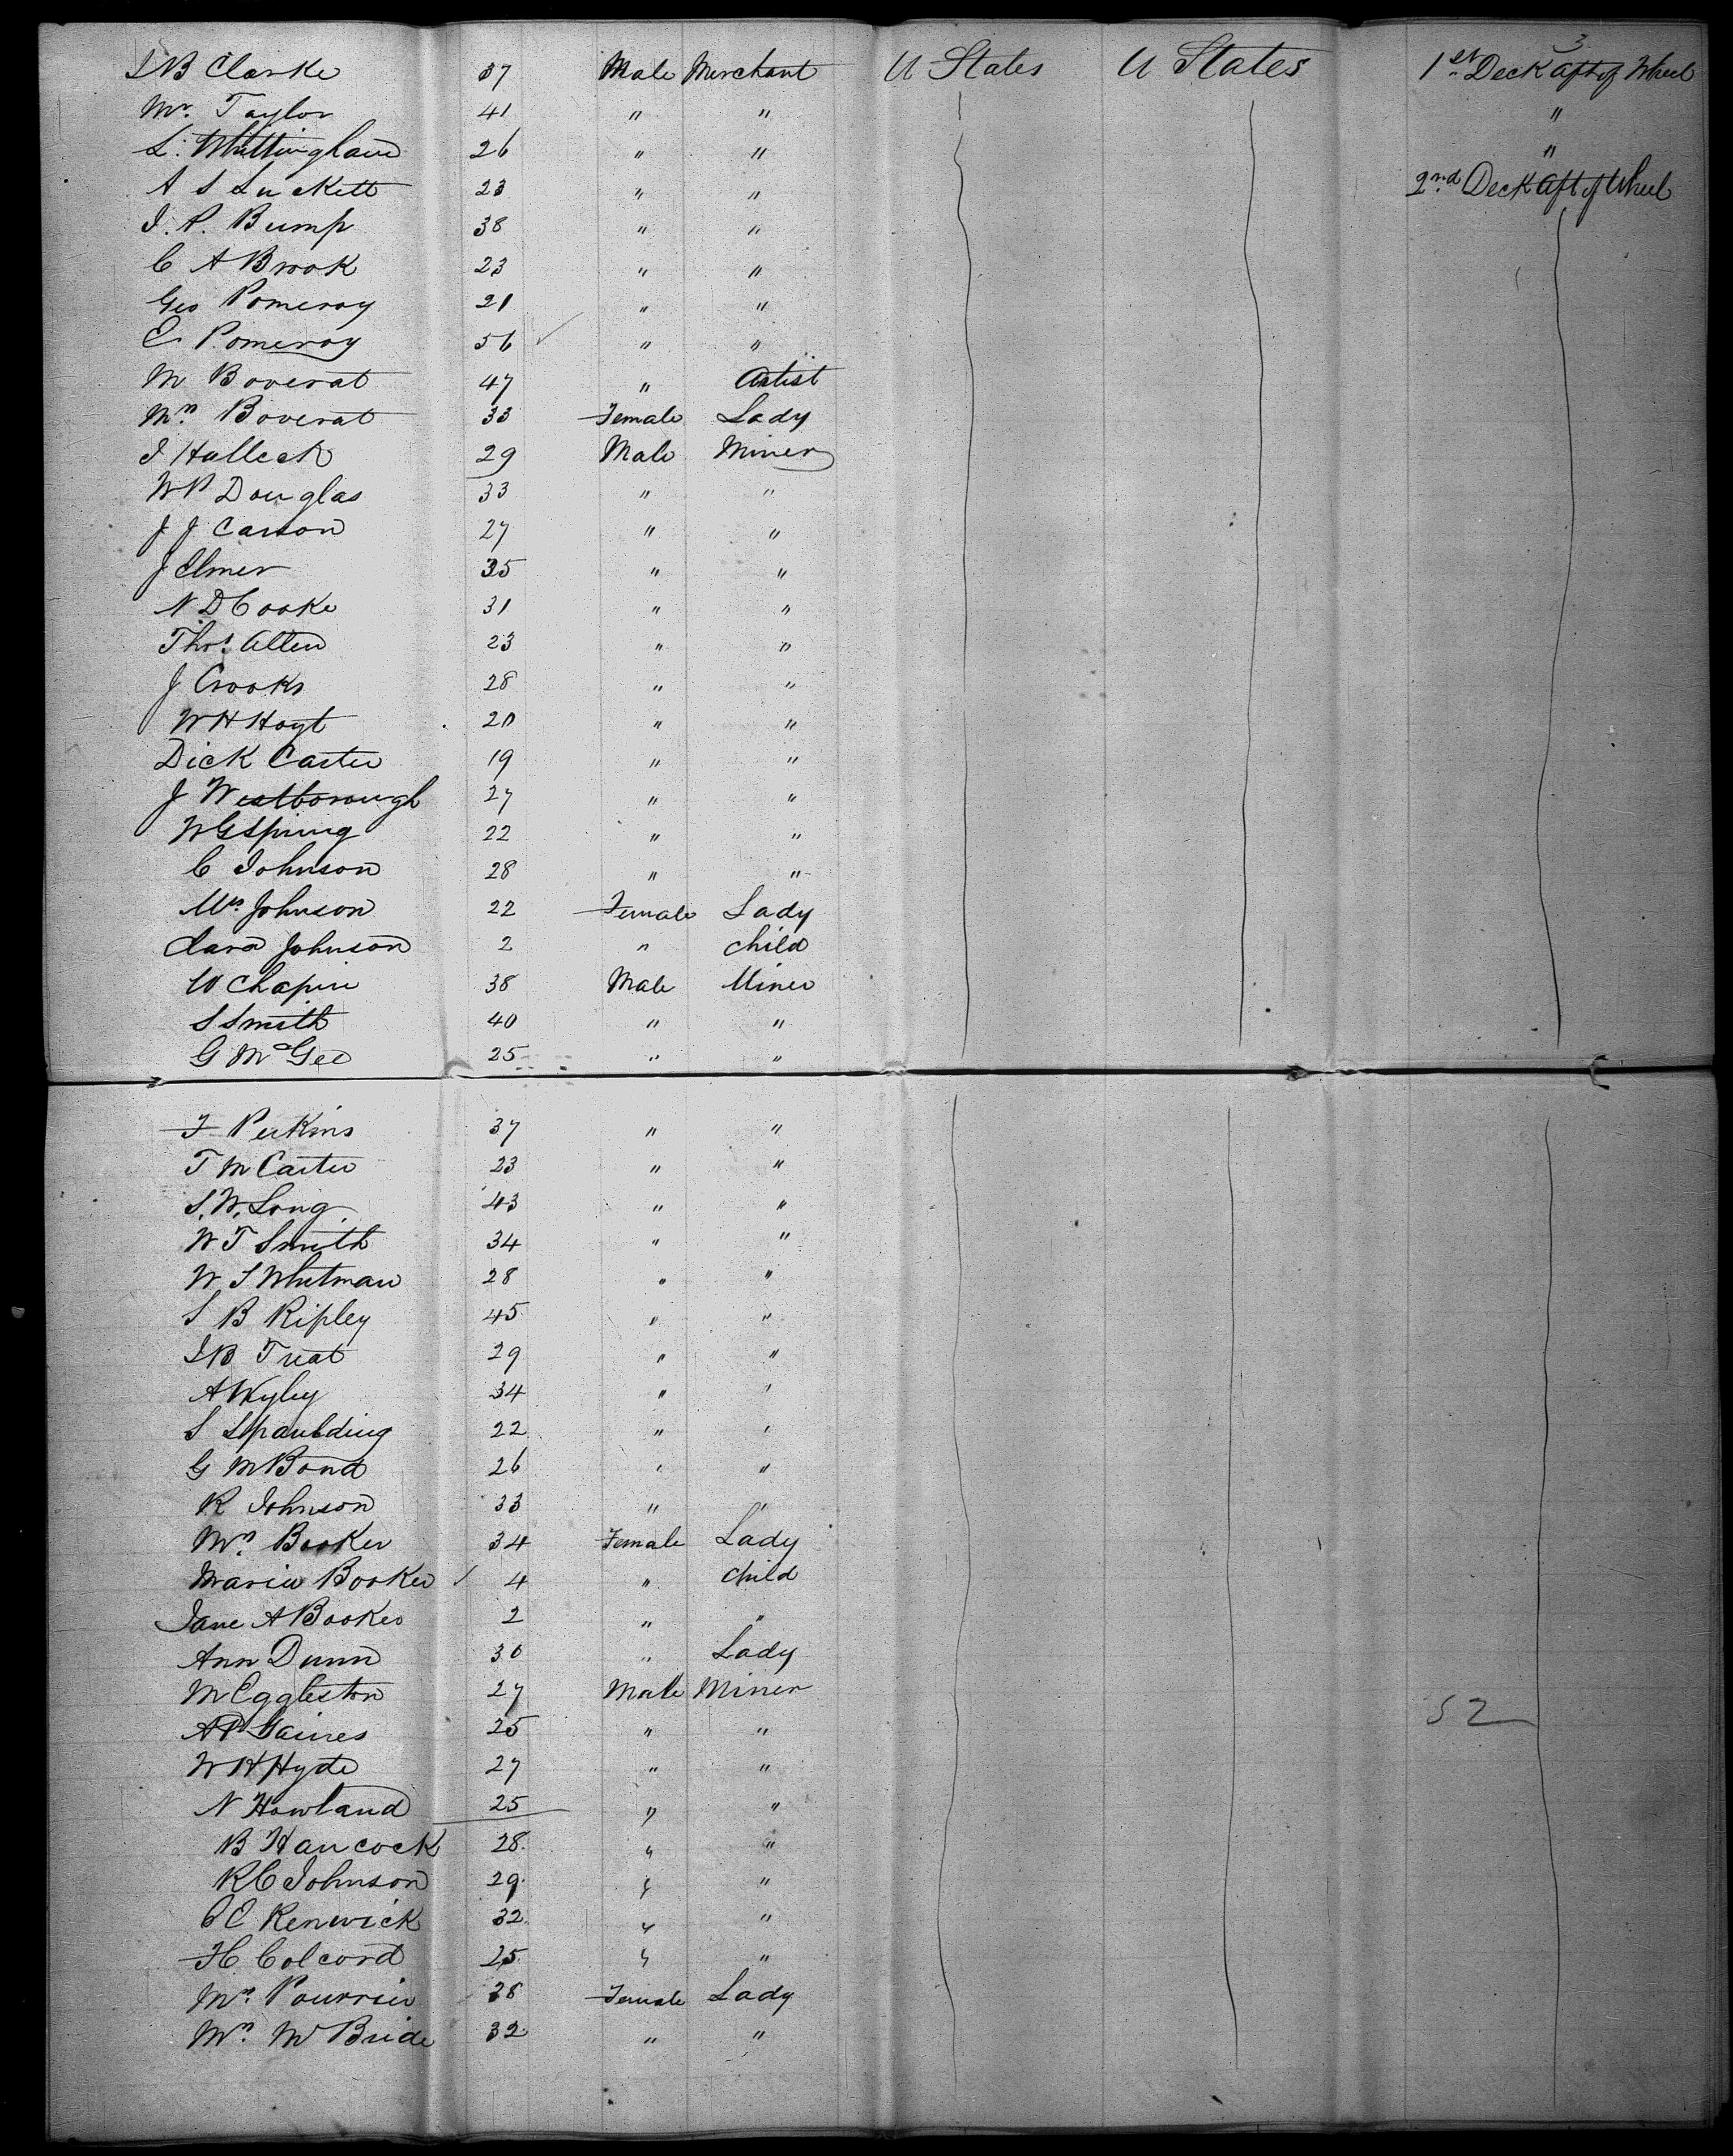 3
I B Clarke 37 Male Merchant U States U States 1st Deck aft of Wheel
Mr. Taylor 41 " " "
L. Whittingham 26 " " "
A S Luckett 23 " " 2nd Deck aft of Wheel
I. P. Bump 38 " "
C A Brook 23 " "
Geo Pomeroy 21 " "
E Pomeroy 56 " "
M Boverat 47 " Artist
Mrs Boverat 33 Female Lady
I Halleck 29 Male Miner
W P Douglas 33 " "
J J Carson 27 " "
J Elmer 35 " "
N D Cooke 31 " "
Thos. Allen 23 " "
J Crooks 28 " "
W H Hoyt 20 " "
Dick Carter 19 " "
J Westborough 27 " "
W G Spring 22 " "
C Johnson 28 " "
Mrs Johnson 22 Female Lady
Clara Johnson 2 " child
W Chapin 38 Male Miner
S Smith 40 " "
G McGee 25 " "
F Perkins 37 " "
T M Carter 23 " "
S. W. Long 43 " "
W T Smith 34 " "
W S Whitman 28 " "
S B Ripley 45 " "
I B Treat 29 " "
A Wyley 34 " "
S Spaulding 22 " "
G M Bond 26 " "
R Johnson 33 " "
Mrs Booker 34 Female Lady
Maria Booker 4 " child
Jane A Booker 2 " "
Ann Dunn 30 " Lady
M Eggleston 27 Male Miner
A P Gaines 25 " " 52
W H Hyde 27 " "
N Howland 25 " "
B Hancock 28 " "
R C Johnson 29 " "
C C Renwick 32 " "
H Colcord 25 " "
Mrs 38 Female Lady
Mrs McBride 32 " "